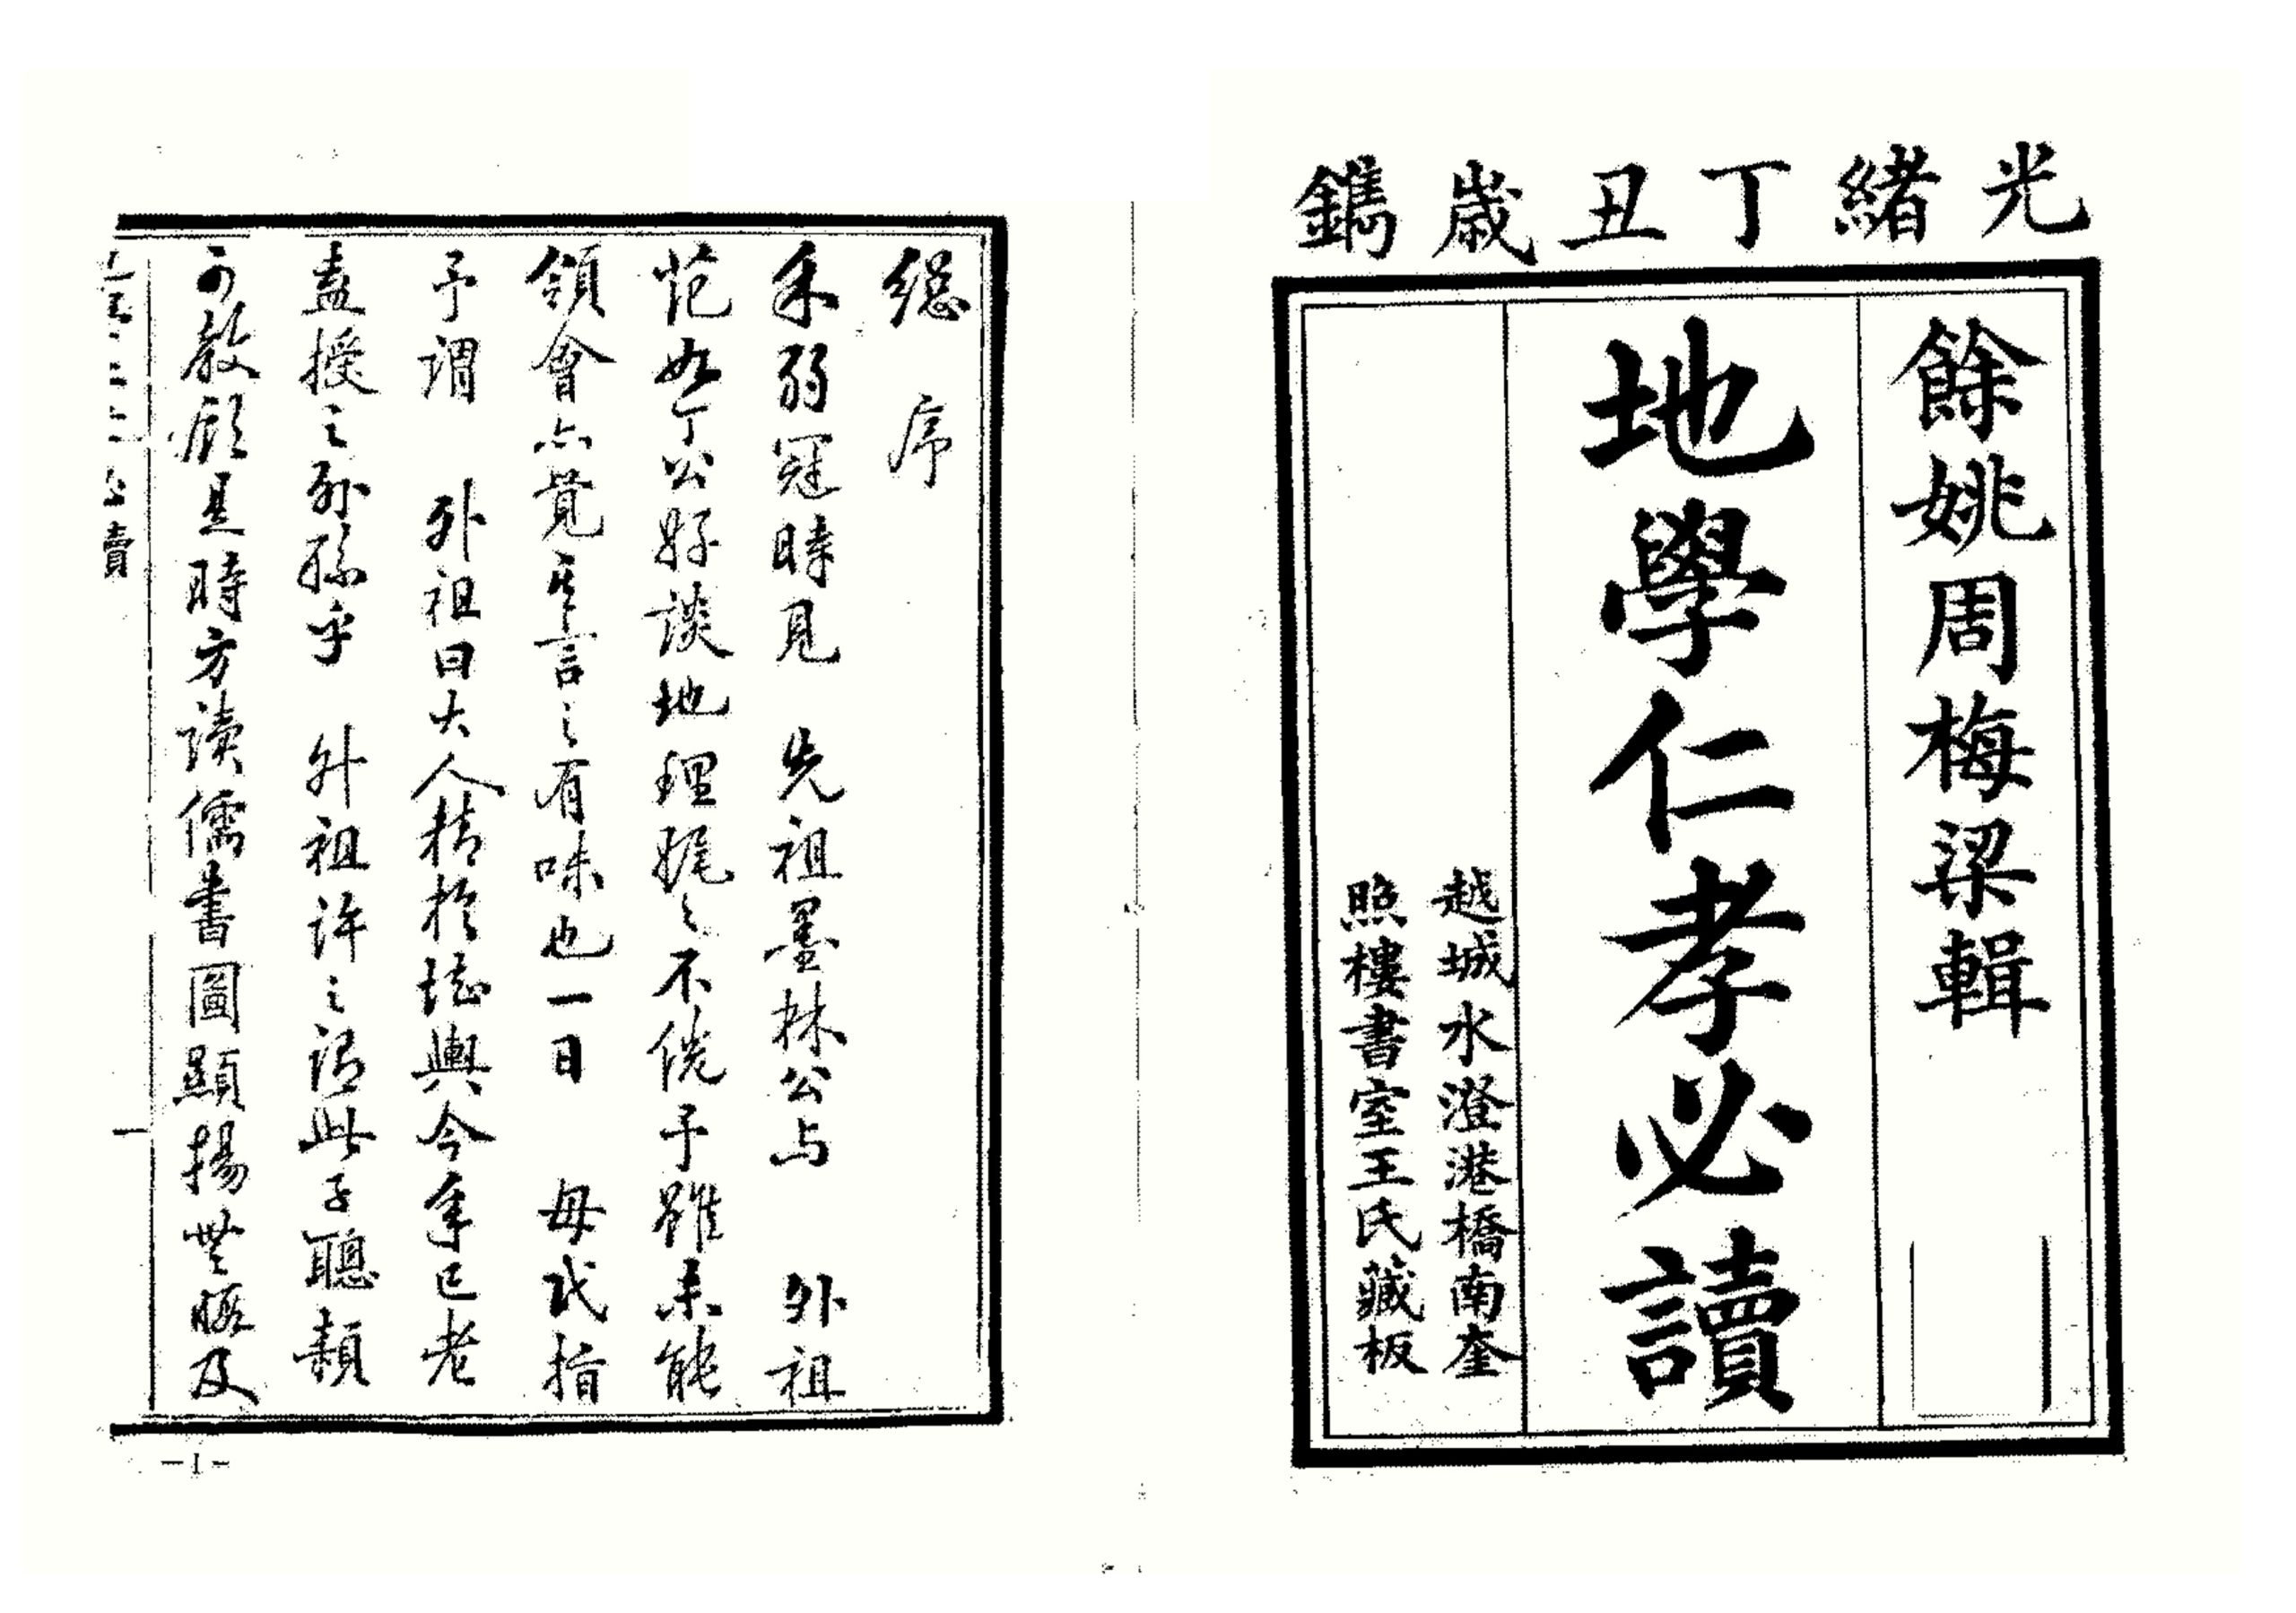 光緒丁丑歲鐫
餘姚周梅梁輯
地學仁孝必讀
越城水澄港橋南奎
照樓書室王氏藏板
總序
余弱冠時見 先祖墨林公与 外祖
范丁公縣談地理娓〻不倦予雖未能
領會亦覺其言之有味也一日 母氏指
予謂 外祖曰大人精於堪輿今年已老
盍授之外孫乎 外祖許之謂此子聰穎
可教顧是時方讀儒書圖顯揚無暇及
一
-1-